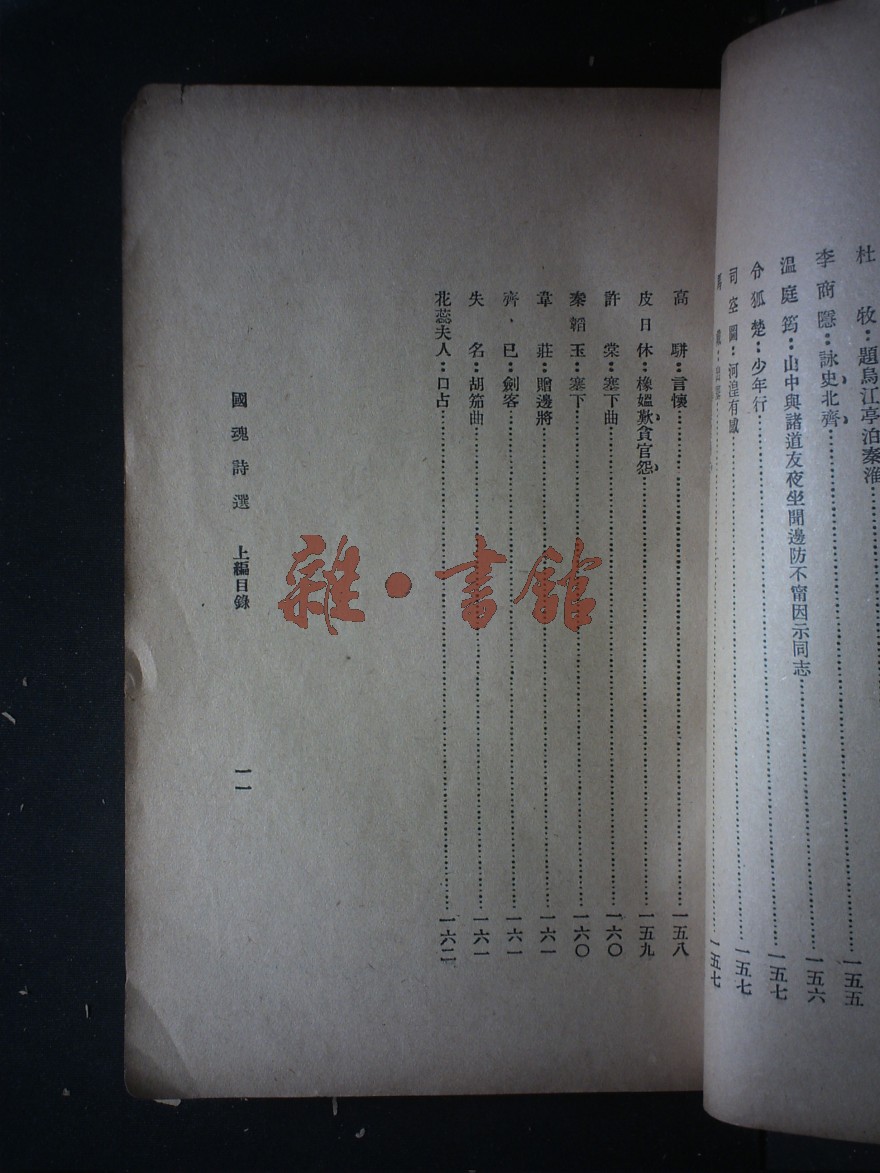 杜　牧：題烏江亭泊秦淮……一五五
李商隱：詠史、北齊、……一五六
溫庭筠：山中與諸道友夜坐聞邊防不甯因示同志……一五七
令狐楚：少年行……一五七
司空圖：河湟有感……一五七
高　駢：言懷……一五八
皮日休：橡媼歎、貪官怨、……一五九
許　棠：塞下曲……一六〇
秦韜玉：塞下……一六〇
韋　莊：贈邊將……一六一
齊、已：劍客……一六一
失　名：胡笳曲……一六一
花蕊夫人：口占……一六二
國魂詩選　上編目錄　一一
雜·書館